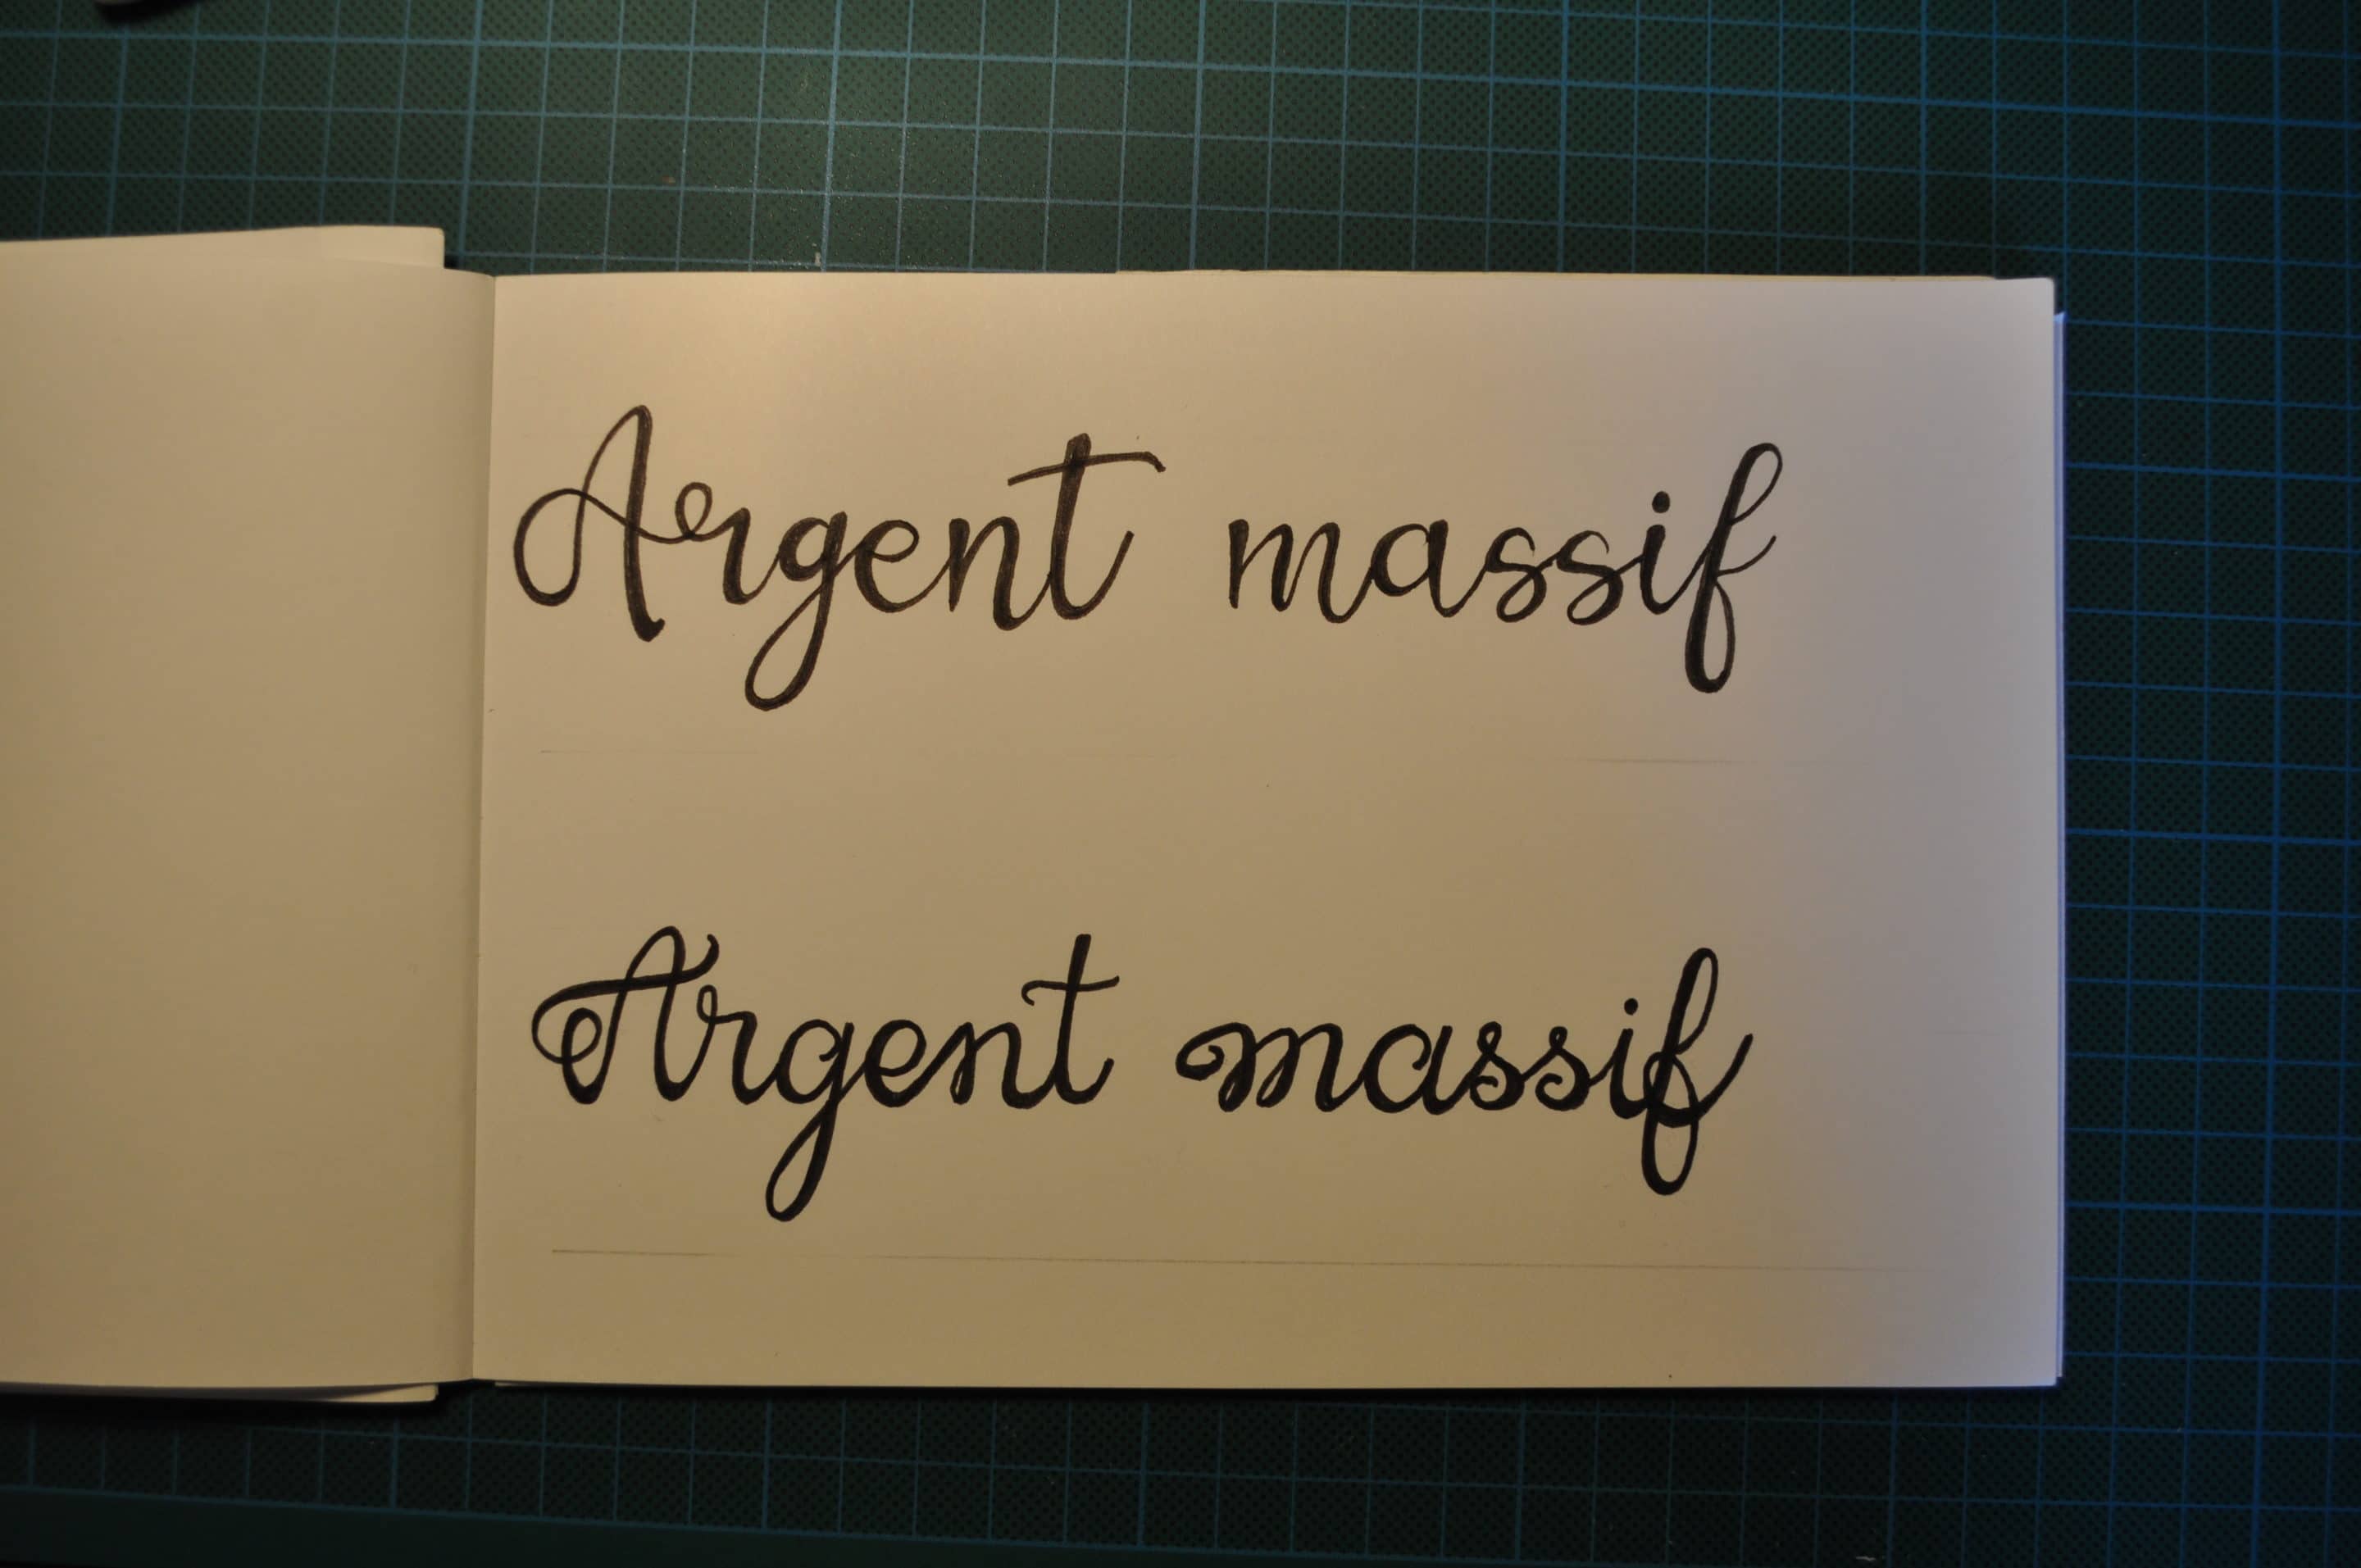 Argent massif
Argent massif